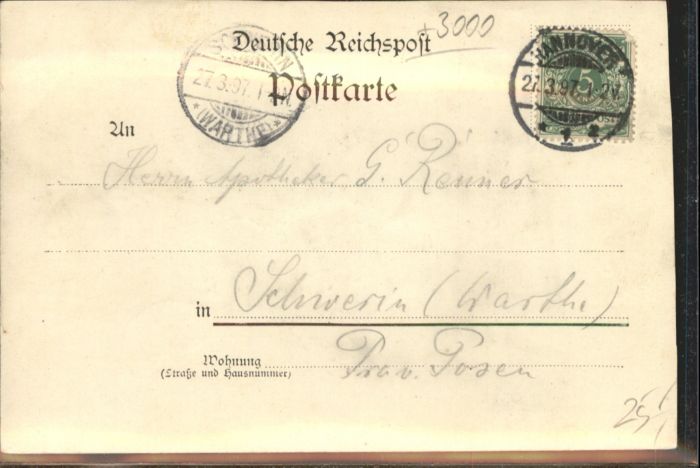 +3000
Deutsche Reichspost
Postkarte
SCHWERIN
27.3.97.
(WARTHE)
HANNOVER
27.3.97.1-2N.
1
5
An
Herrn Apotheker G. Renner
in Schwerin (Warthe)
Wohnung
(Straße und Hausnummer)
Prov. Posen